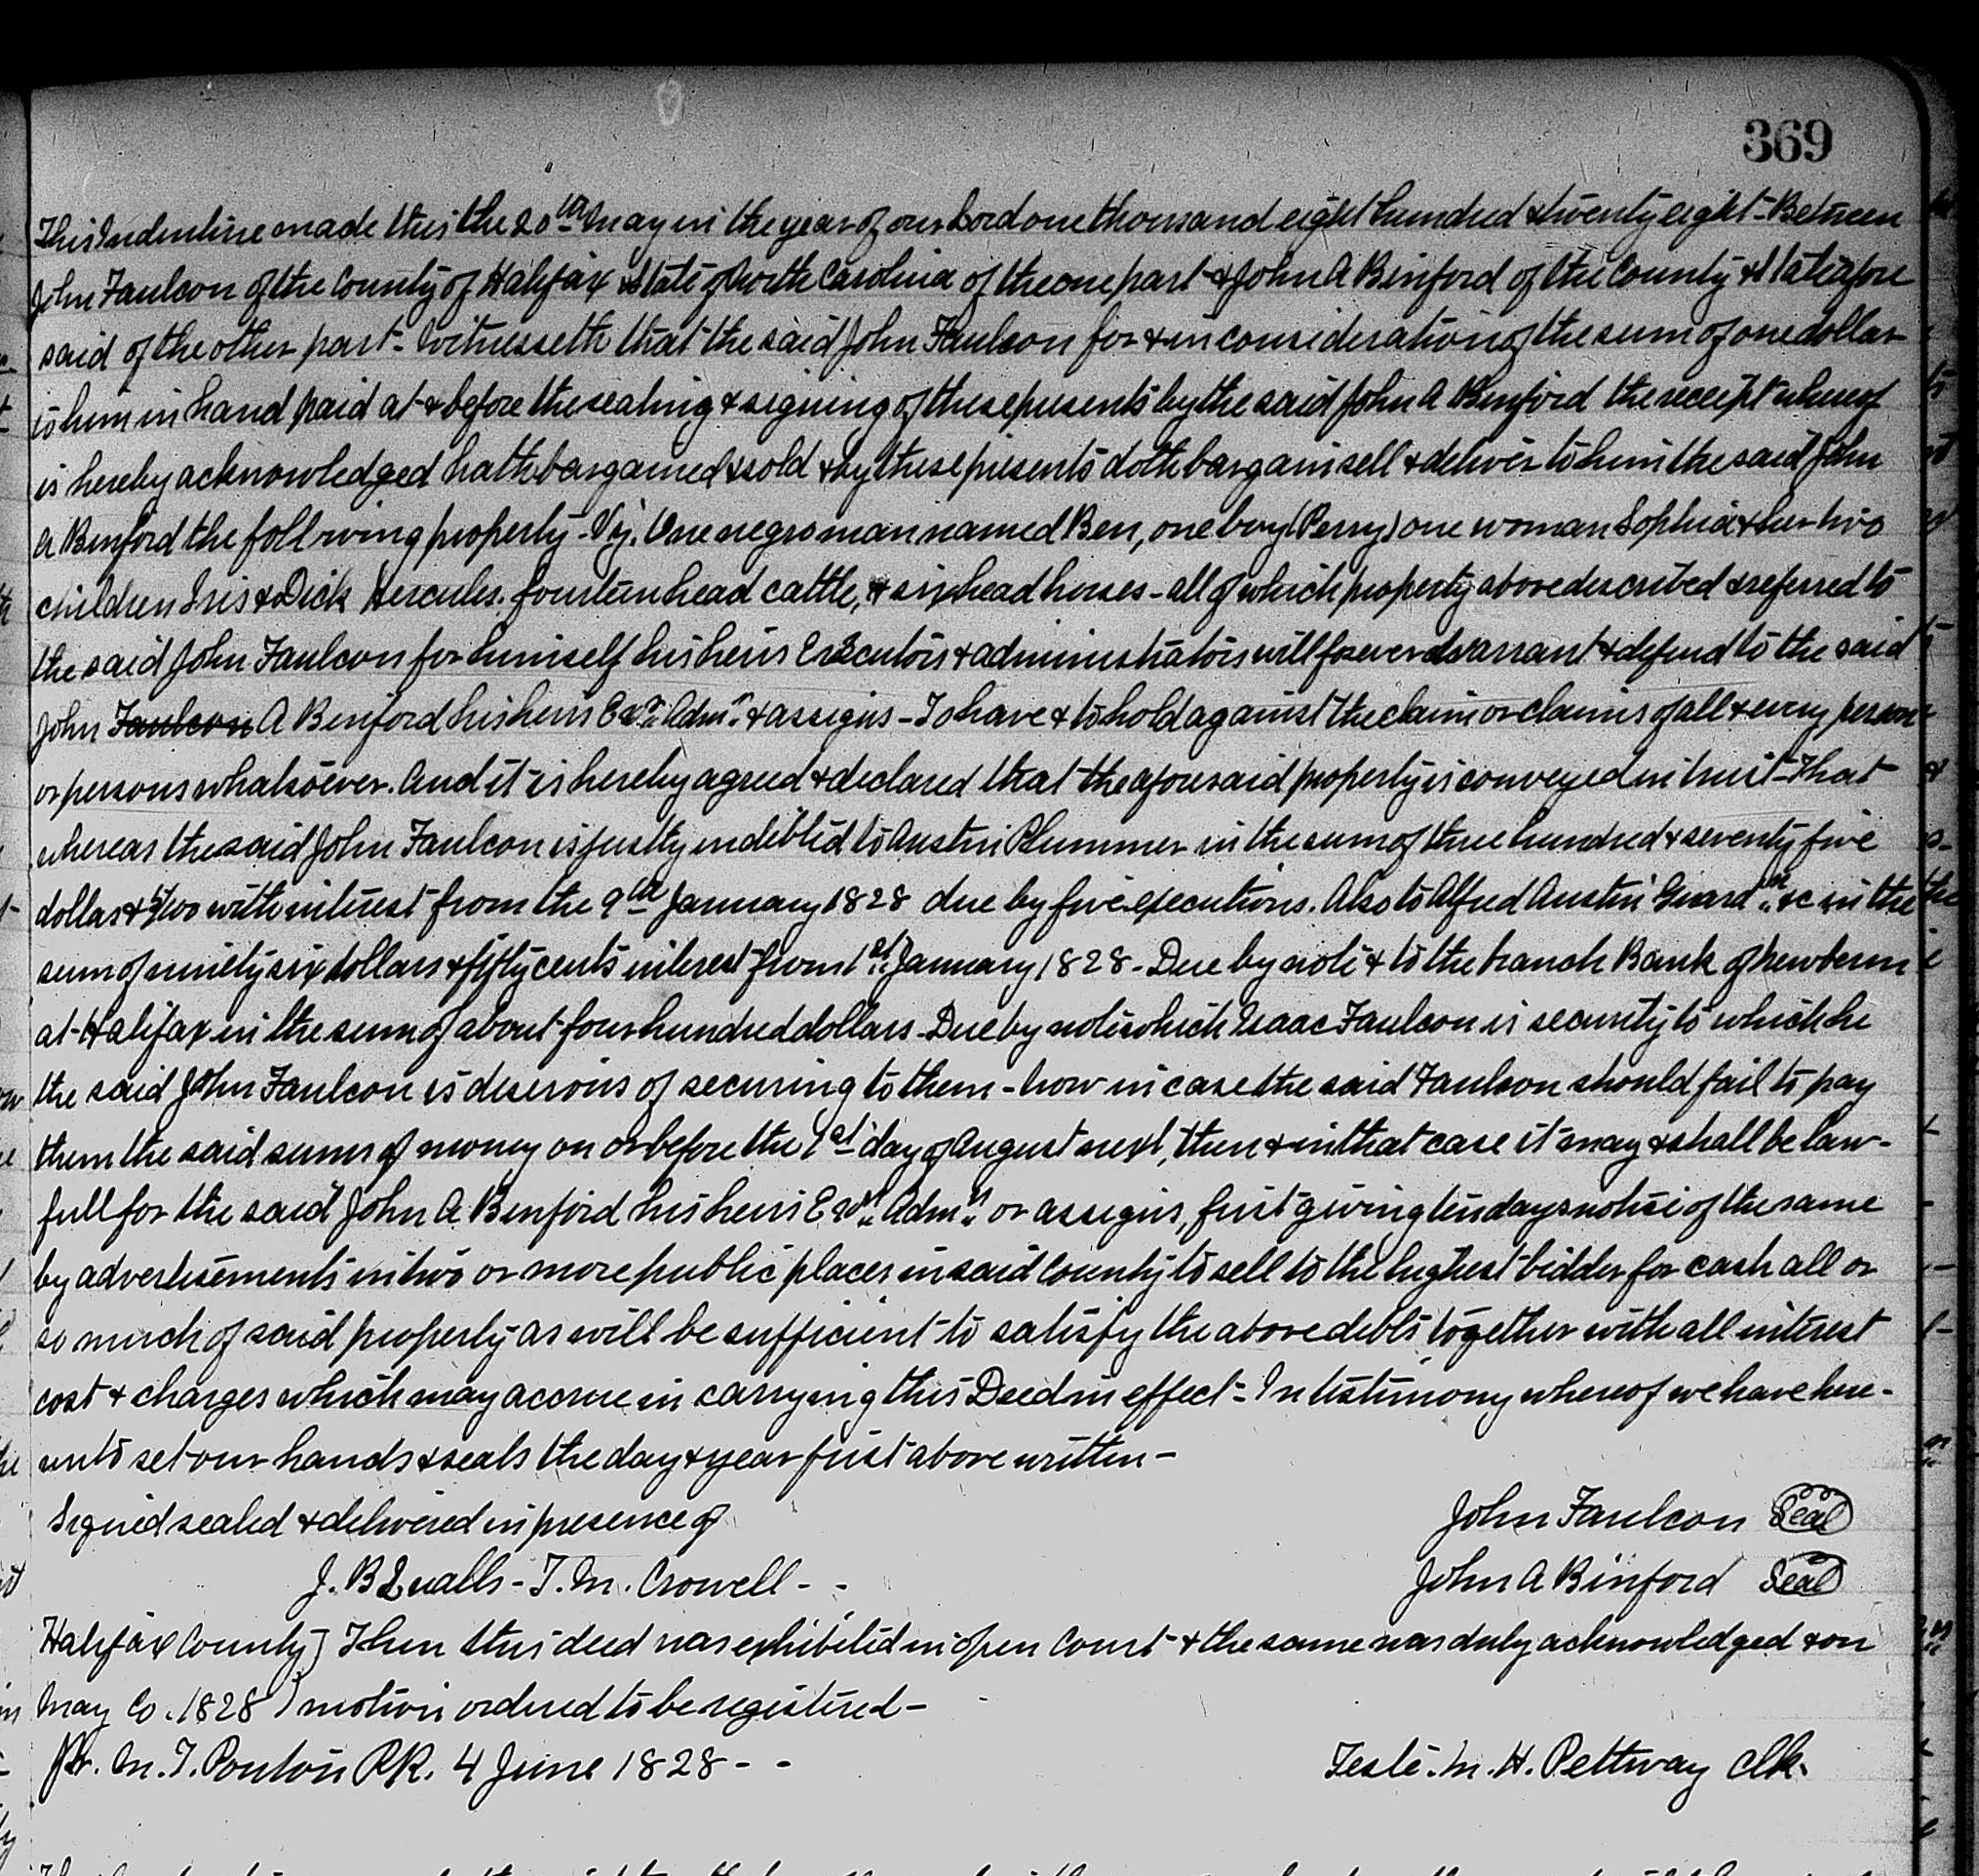 369
This Indenture made this the 20th May in the year of our Lord one thousand eight hundred & twenty eight - Between
John Faulcon of the County of Halifax & State of North Carolina of the one part & John A Binford of the County & State afore
said of the other part - Witnesseth that the said John Faulcon for & in consideration of the sum of one dollar
to him in hand paid at & before the sealing & signing of these presents by the said John A Binford the receipt whereof
is hereby acknowledged hath bargained & sold & by these presents doth bargain sell & deliver to him the said John
A Binford the following property - Viz. One negro man named Ben, one boy (Perry) one woman Sophia & her two
children Iris & Dick Hercules. fourteen head cattle, & six head horses - all of which property above described & referred to
the said John Faulcon for himself his heirs Executors & administrators will forever warrant & defend to the said
John Faulcon A Binford his heirs Exrs. Admrs. & assigns - To have & to hold against the claim or claims of all & every person
or persons whatsoever. And it is hereby agreed & declared that the aforesaid property is conveyed in trust - That
whereas the said John Faulcon is justly indebted to Austin Plummer in the sum of three hundred & seventy five
dollars & /100 with interest from the 9th January 1828 due by five executions. Also to Alfred Austin Guardn. &c in the
sum of ninety six dollars & fifty cents interest from 1st January 1828 - Due by note & to the branch Bank of Newbern
at Halifax in the sum of about four hundred dollars - Due by note which Isaac Faulcon is security to which he
the said John Faulcon is deserous of securing to them - Now in case the said Faulcon should fail to pay
them the said sums of money on or before the 1st day of August next, then & in that case it may & shall be law-
full for the said John A. Binford his heirs Exrs. Admrs. or assigns, first giving ten days notice of the same
by advertisements in two or more public places in said County to sell to the highest bidder for cash all or
so much of said property as will be sufficient to satisfy the above debts together with all interest
cost & charges which may accrue in carrying this Deed in effect - In testimony whereof we have here-
unto set our hands & seals the day & year first above written -
Signed sealed & delivered in presence of
John Faulcon Seal
J. B Qualls - T. M. Crowell - -
John A Binford Seal
Halifax County } Then this deed was exhibited in open Court & the same was duly acknowledged & on
May Co. 1828 } motion ordered to be registered -
Pr. M. T. Ponton P.R. 4 June 1828 - -
Teste. M. H. Pettway Clk.